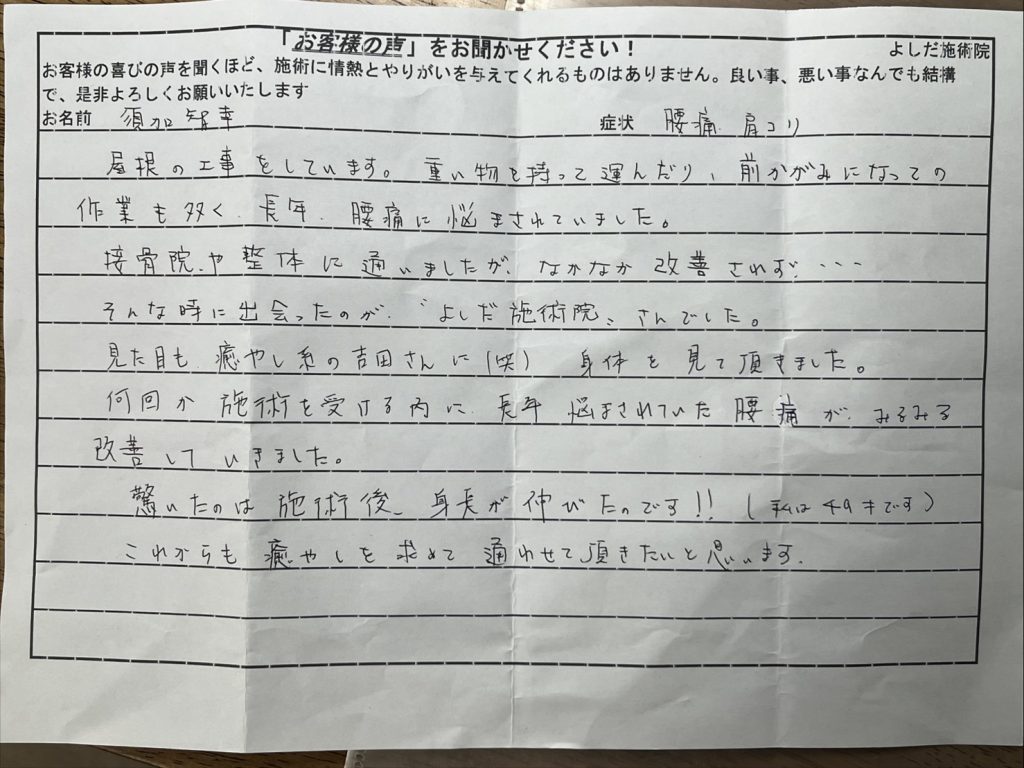 「お客様の声」をお聞かせください！ よしだ施術院
お客様の喜びの声を聞くほど、施術に情熱とやりがいを与えてくれるものはありません。良い事、悪い事なんでも結構
で、是非よろしくお願いいたします
お名前 須加智幸 症状 腰痛 肩コリ
屋根の工事をしています。重い物を持って運んだり、前かがみになっての
作業も多く、長年、腰痛に悩まされていました。
接骨院や整体に通いましたが、なかなか改善されず、・・・
そんな時に出会ったのが、〝よしだ施術院〟さんでした。
見た目も癒やし系の吉田さんに（笑） 身体を見て頂きました。
何回か施術を受ける内に、長年悩まされていた腰痛が、みるみる
改善していきました。
驚いたのは施術後、身長が伸びたのです!!（私は49才です）
これからも癒やしを求めて通わせて頂きたいと思います。